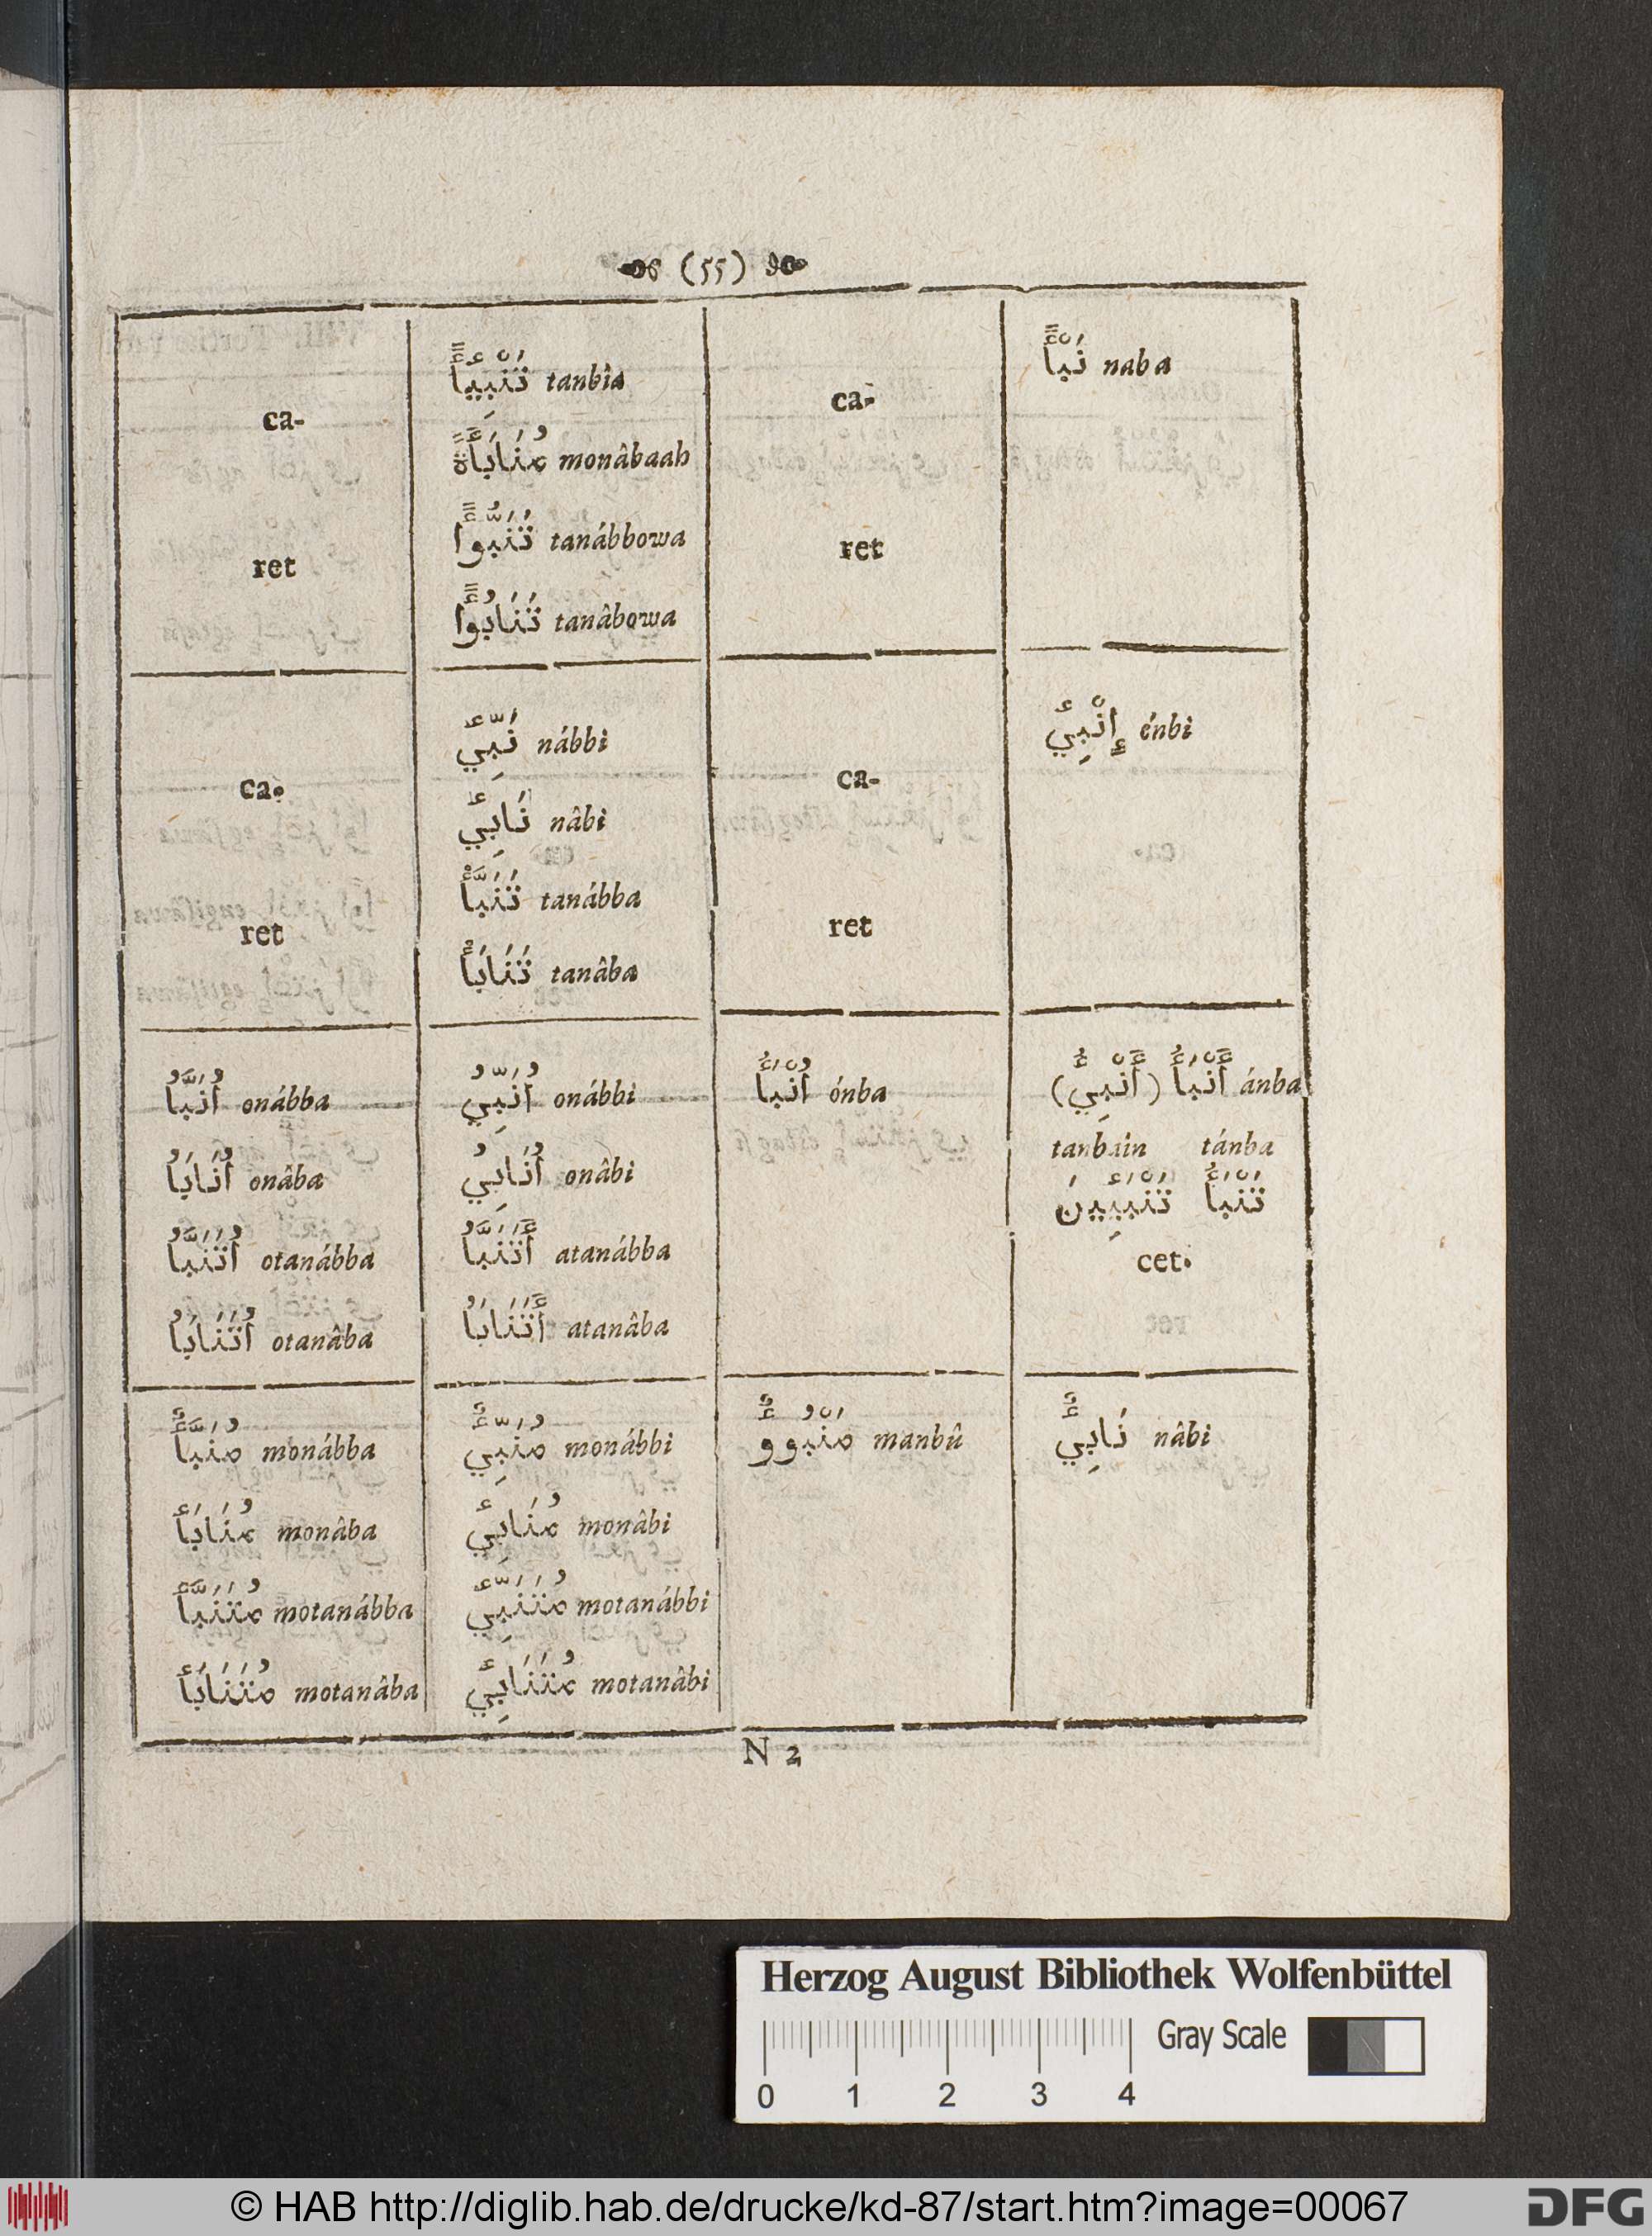 (55)
ca-
ret
تَنْبِئًا tanbîa
مُنَابَأَةً monâbaah
تَنَبُّؤًا tanábbowa
تَنَابُؤًا tanâbowa
ca-
ret
نَبْأً naba
ca-
ret
نَبِّئْ nábbi
نَابِئْ nâbi
تَنَبَّأْ tanábba
تَنَابَأْ tanâba
ca-
ret
إِنْبِئْ énbi
أُنَبَّأُ onábba
أُنَابَأُ onâba
أُتَنَبَّأُ otanábba
أُتَنَابَأُ otanâba
أُنَبِّئُ onábbi
أُنَابِئُ onâbi
أَتَنَبَّأُ atanábba
أَتَنَابَأُ atanâba
أُنْبَأُ ónba
أَنْبَأُ (أَنْبِئُ) ánba
tanbaîn tánba
تَنْبَأُ تَنْبَئِينَ
cet.
مُنَبَّأٌ monábba
مُنَابَأٌ monâba
مُتَنَبَّأٌ motanábba
مُتَنَابَأٌ motanâba
مُنَبِّئٌ monábbi
مُنَابِئٌ monâbi
مُتَنَبِّئٌ motanábbi
مُتَنَابِئٌ motanâbi
مَنْبُوؤٌ manbû
نَابِئٌ nâbi
N 2
Herzog August Bibliothek Wolfenbüttel
Gray Scale
0 1 2 3 4
© HAB http://diglib.hab.de/drucke/kd-87/start.htm?image=00067
DFG